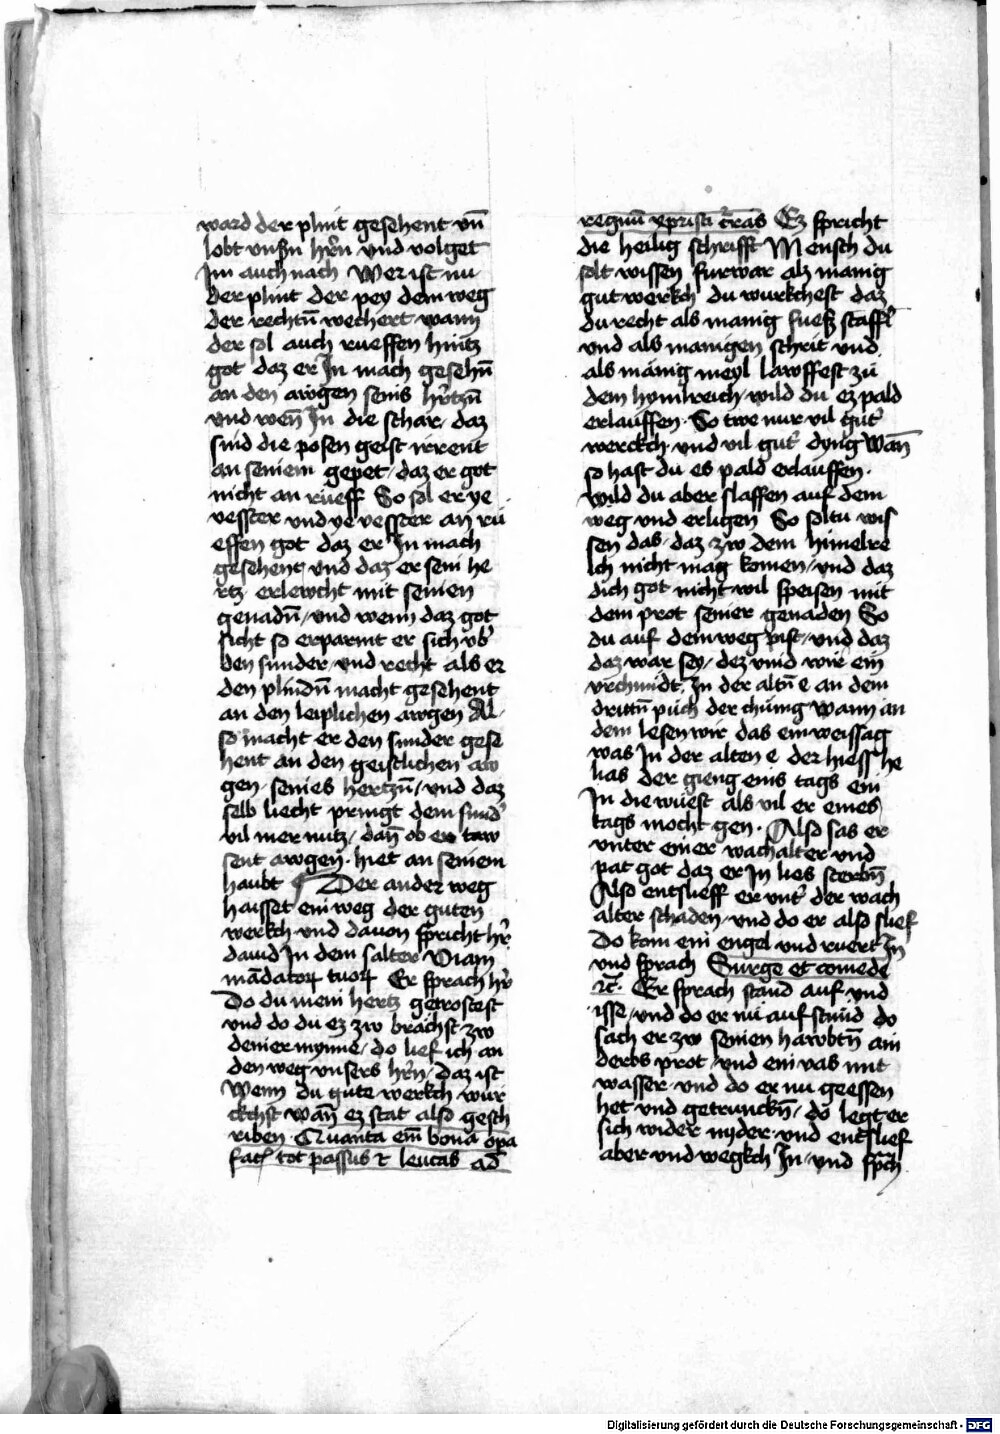 ward der plint gesehent vn̄
lobt vnsn̄ hr̄n vnd volget
Im auch nach Wer ist nu
der plint der pey dem weg
der rechtn̄ wechert wann
der sol auch rueffen hintz
got daz er In mach gesehn̄
an den awgen seins hr̄tzn̄
vnd wen̄ In die schar / daz
sind die posen geist irrent
an seinem gepet / daz er got
nicht an rueff So sol er ye
vesster vnd ye vesster an rü
effen got daz er In mach
gesehent vnd daz er sein he
rtz erlewcht mit seinen
genadn̄ / vnd wenn daz got
sicht so erparmt er sich vb̛
den sunder / vnd recht als er
den plindn̄ macht gesehent
an den leiplichen awgen Al
so macht er den sunder gese
hent an den geistlichen aw
gen seines hertzn̄ / vnd daz
selb liecht pringt dem sund̛
vil mer nutz / dan̄ ob er taw
sent awgen hiet an seinem
haubt ¶ Der ander weg
haisset ein weg der guten
werkch vnd dauon spricht hr̄
dauid In dem salter Viam
mādatoꝝ tuoꝝ Er sprach hr̄
Do du mein hertz getrostest
vnd do du ez zw brachst zw
deiner mynne / do lief ich an
den weg vnsers hr̄n / Daz ist
Wenn du gute werkch wür
ckchst wan̄ ez stat also gesch
riben Quanta em̄ bona opa
fac̄ tot passus et leucas ad
regnū xpristi t̄ras Ez spricht
die heilig schrifft Mensch du
solt wissen furwar alz manig
gut werkch du wurkchest daz
du recht als manig fuesz staffl̄
vnd als manigen schrit vnd
als mänig meyl lawffest zü
dem hymlreich / wild du ez pald
erlauffen So twe nur vil gut̛
werckch vnd vil gut̛ dyng Wan̄
so hast du es pald erlauffen
Wild du aber slaffen auf dem
weg vnd erligen So soltu wis
sen das / daz zw dem himelre
ich nicht mag komen / vnd daz
dich got nicht wil speisen mit
dem prot seiner genaden So
du auf dem weg pist / vnd daz
daz war sey / dez vind wir ein
vrchundt In der altn̄ e an dem
drittn̄ püch der chünig Wann an
dem lesen wir das ein weissag
was In der alten e der hiess he
lias der gieng eins tags ein
In die wüest als vil er eines
tags mocht gen Also sas er
vnter einer wachalter vnd
pat got daz er In lies sterbn̄
Also entslieff er vnt̛ der wach
alter schaden vnd do er also slief
Do kom ein engel vnd ruert In
vnd sprach Surge et comede
etc̄ Er sprach stand auf vnd
isse / vnd do er nü auf stünd do
sach er zw seinen hawbtn̄ ain
derbs prot vnd ein vas mit
wasser vnd do er nu geessen
het vnd getrunckn̄ / do legt er
sich wider nyder vnd entslief
aber vnd wegkch In / vnd sp̄ch